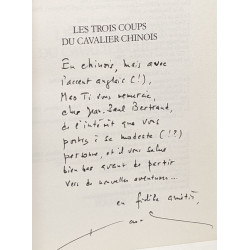 LES TROIS COUPS
DU CAVALIER CHINOIS
En chinois, mais avec
l'accent anglais (!),
Mee Ti vous remercie,
cher Jean-Paul Bertrand,
de l'intérêt que vous
portez à sa modeste (!?)
personne, et il vous salue
bien bas avant de partir
vers de nouvelles aventures...
en fidèle amitié,